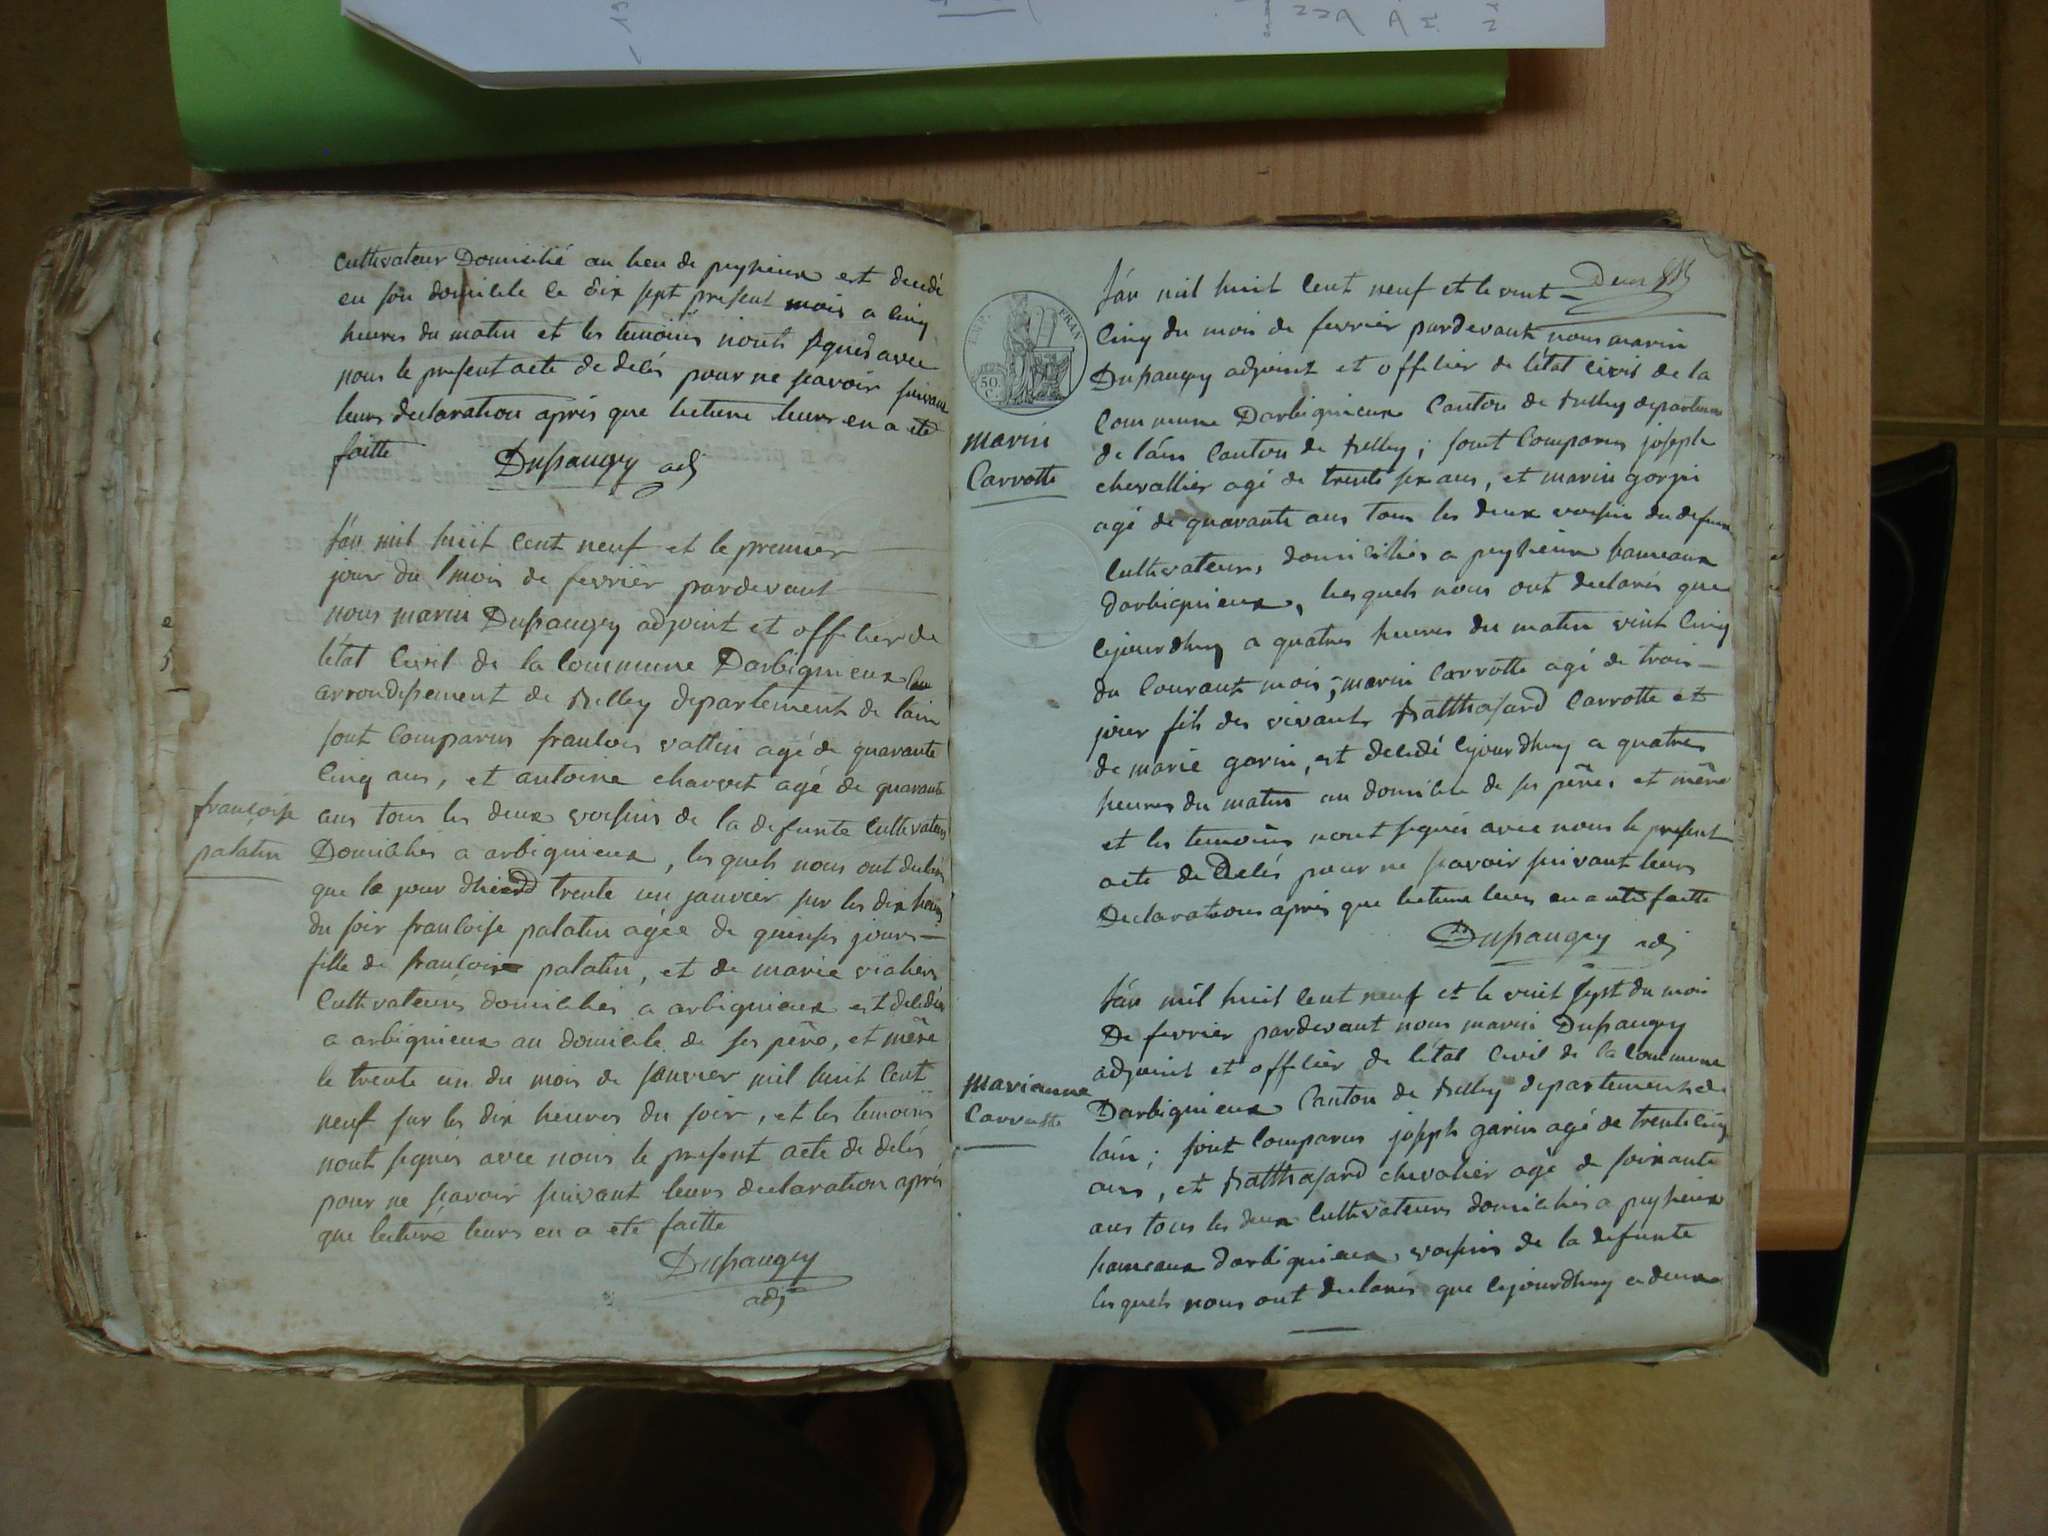 cultivateur Domicilié au lieu de peysieux est decedé
en son domicile le dix sept present mois a cinq
heures du matin et les temoins n'ont signés avec
nous le present acte de delés pour ne scavoir suivant
leurs declaration après que lecture leurs en a eté
faitte
Dupaugey adj
l'án mil huit cent neuf et le premier
jour du mois de fevrièr pardevant
nous marin Dupaugey adjoint et officier de
l'état civil de la commune Darbignieux
arrondissement de Belley departement de l'ain
sont comparus francois vattin agé de quarante
cinq ans, et antoine charvet agé de quarante
françoise
palatin
ans tous les deux voisins de la defunte cultivateurs
Domiciliés a arbignieux, lesquels nous ont declarés
que le jour dhier trente un janvier sur les dix heures
du soir francoise palatin agée de quinse jours
fille de francois palatin, et de marie
cultivateurs domiciliés a arbignieux est decedée
a arbignieux au domicile de ses père, et mère
le trente un du mois de janvier mil huit cent
neuf sur les dix heures du soir, et les temoins
nont signés avec nous le present acte de delés
pour ne scavoir suivant leurs declaration après
que lecture leurs en a eté faitte
Dupaugey
adj
Deux
l'án mil huit cent neuf et le vint
cinq du mois de fevrier pardevant nous marin
Dupaugey adjoint et officier de l'état civil de la
EMP. FRAN
50.
C.
commune Darbignieux canton de Belley departement
marin
Carrotte
de l'áin canton de Belley; sont comparus joseph
chevallier agé de trente six ans, et marin
agé de quarante ans tous les deux voisin du defunt
cultivateurs domicilliés a peysieux hameaux
darbignieux, lesquels nous ont declarés que
cejourdhuy a quatres heures du matin vint cinq
du courant mois, marin carrotte agé de trois
jour fils des vivants Balthasard Carrotte et
de marie garin, est decedé cejourdhuy a quatres
heures du matin au domicile de ses père, et mère
et les temoins nont signés avec nous le present
acte de Delés pour ne scavoir suivant leurs
Declarations après que lecture leurs en a eté faitte
Dupaugey adj
l'án mil huit cent neuf et le vint sept du mois
De fevrier pardevant nous marin Dupaugey
adjoint et officier de l'état civil de la commune
marianne
Carrotte
Darbignieux canton de Belley departement de
láin; sont comparus joseph garin agé de trente cinq
ans, et Balthasard chevalier agé de soixante
ans tous les deux cultivateurs domiciliés a peysieux
hameaux darbignieux voisins de la defunte
lesquels nous ont declarés que cejourdhuy a deux